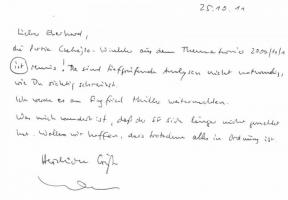 25.10.11
Lieber Eberhard,
die Partie aus dem Thematurnier 2006/
ist remis! Da sind tiefgreifende Analysen nicht notwendig,
wie Du richtig schreibst.
Ich werde es an weitermelden.
Was mich wundert ist, daß der SF sich länger nicht gemeldet
hat. Wollen wir hoffen, dass trotzdem alles in Ordnung ist
Herzliche Grüße